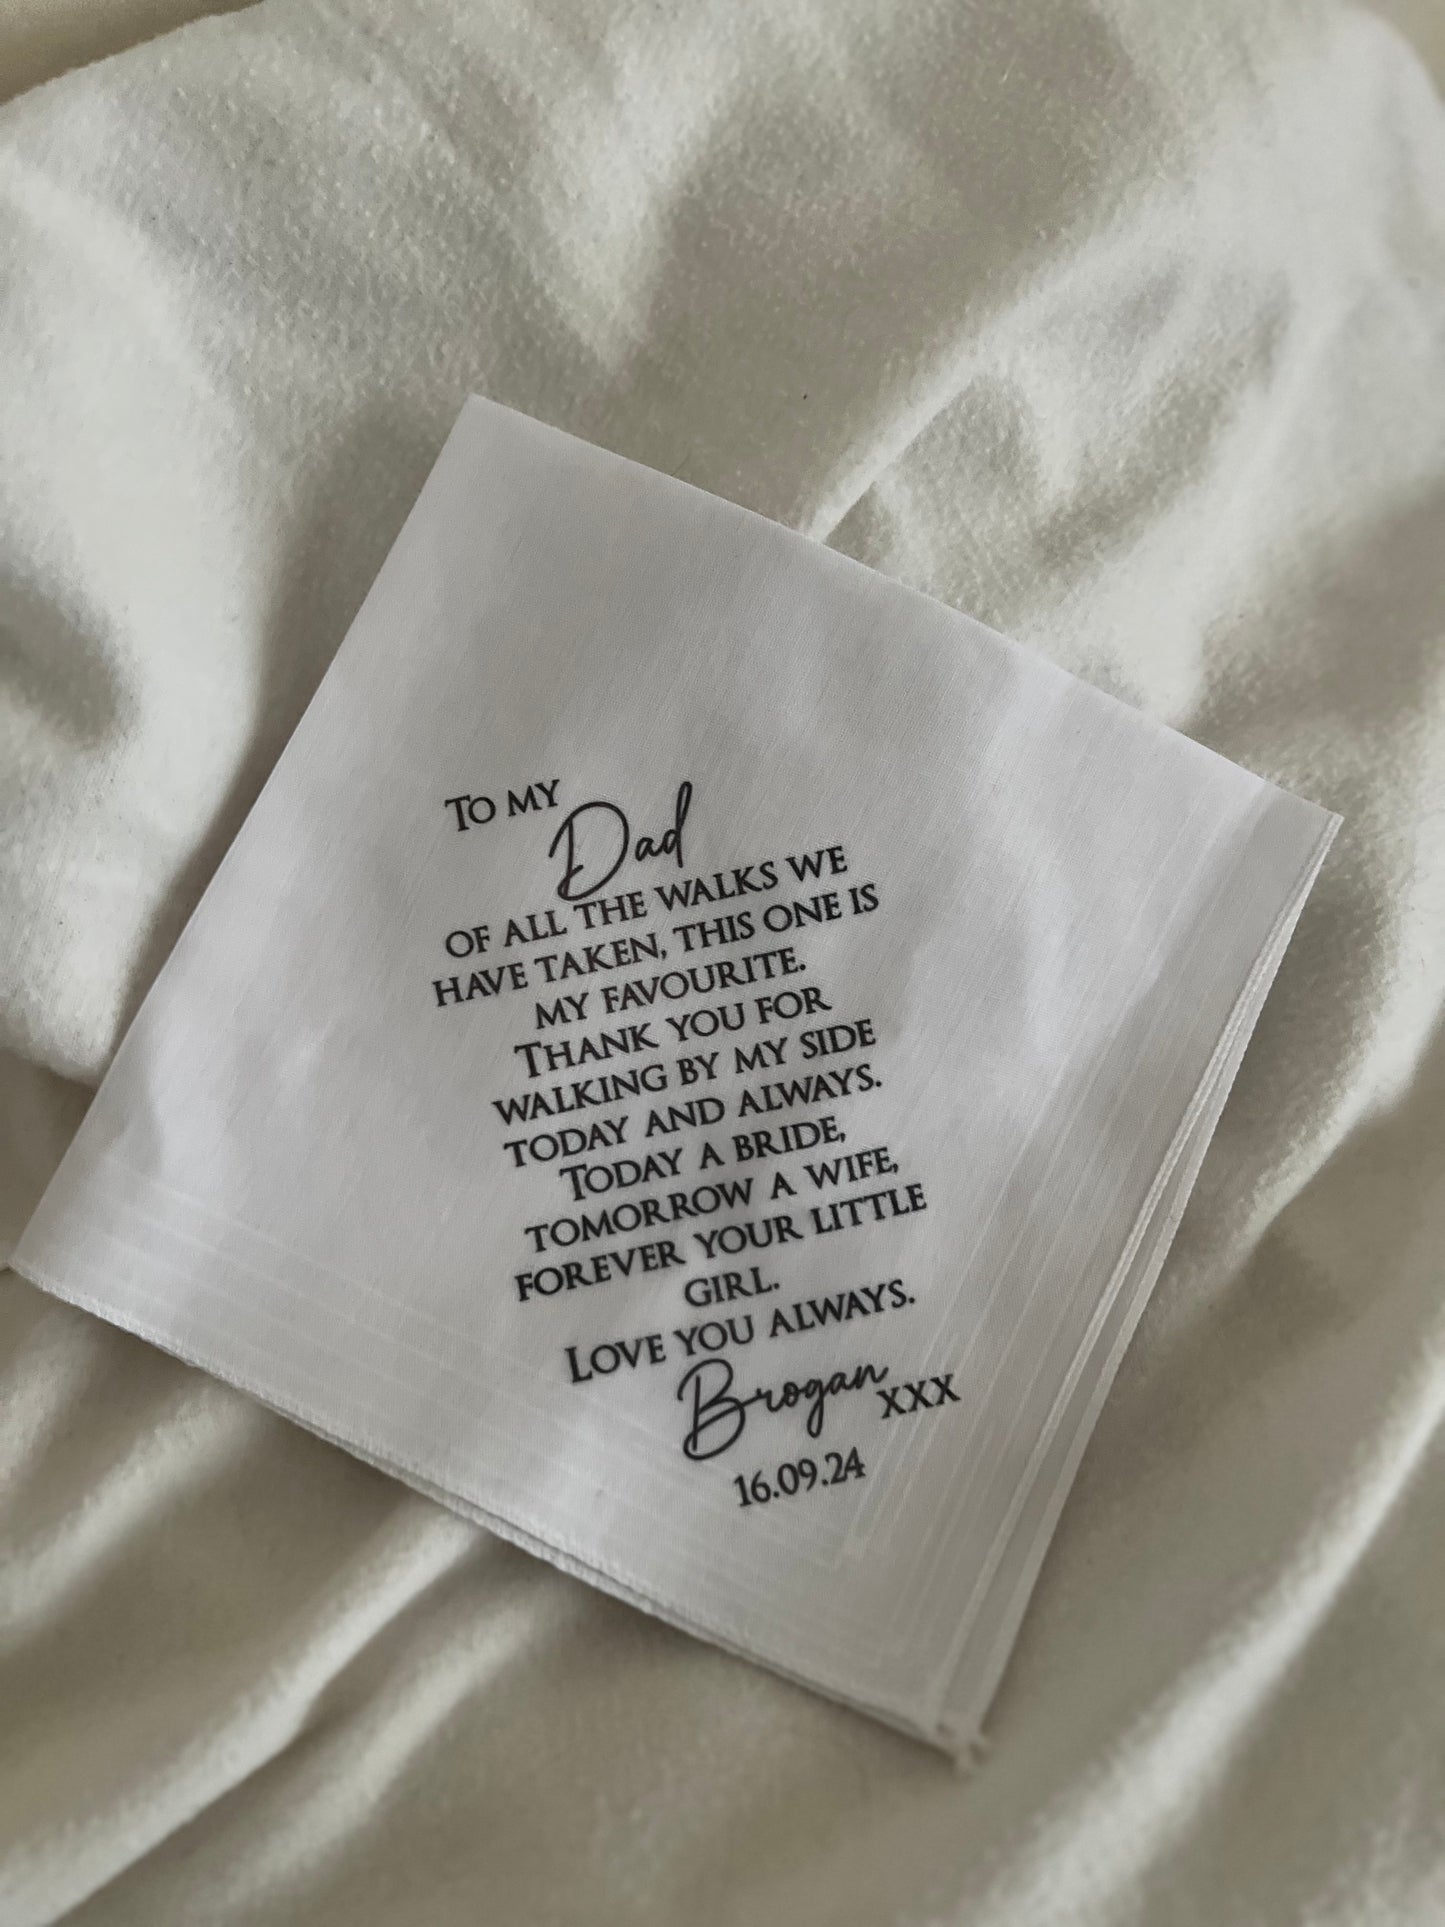 TO MY
Dad
OF ALL THE WALKS WE
HAVE TAKEN, THIS ONE IS
MY FAVOURITE.
THANK YOU FOR
WALKING BY MY SIDE
TODAY AND ALWAYS.
TODAY A BRIDE,
TOMORROW A WIFE,
FOREVER YOUR LITTLE
GIRL.
LOVE YOU ALWAYS.
Brogan XXX
16.09.24